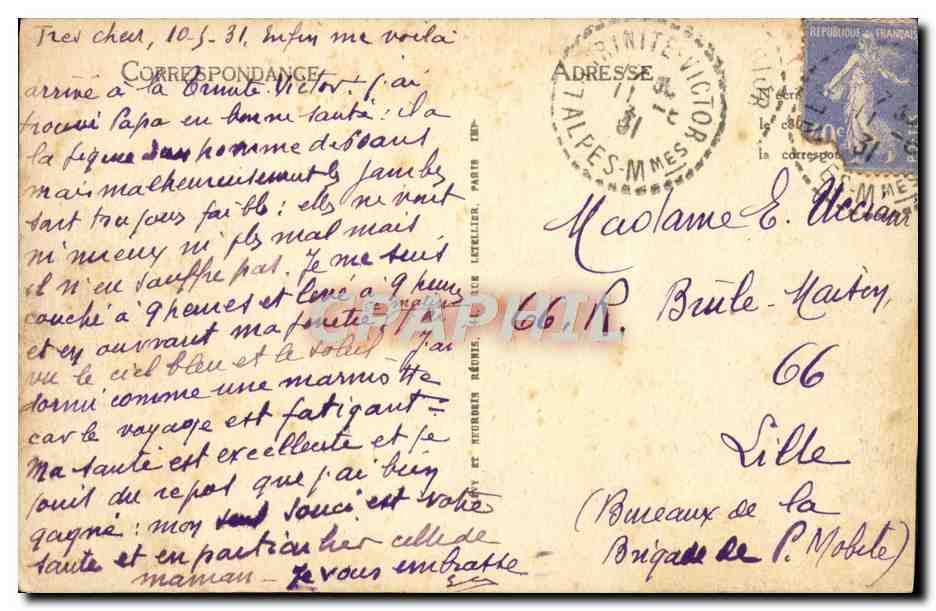 Tres cher, 10-5-31. Enfin me voila
CORRESPONDANCE
arrivé à la Trinite Victor: j'ai
trouvé Papa en bonne santé: il a
la figure d'un homme de 60 ans
mais malheureusement les jambes
sont toujours faible: elles ne vont
ni mieux ni plus mal mais
il n'en souffre pas. Je me suis
couché à 9 heures et levé à 9 heures
ce matin
et en ouvrant ma fenetre j'ai
vu le ciel bleu et le soleil - J'ai
dormi comme une marmotte
car le voyage est fatigant =
Ma santé est excellente et je
jouis du repos que j'ai bien
gagné: mon seul souci est votre
sante et en particulier celle de
maman - Je vous embrasse
LEVY ET NEURDEIN RÉUNIS, RUE LETELLIER, PARIS IMP.
ADRESSE
TRINITE-VICTOR
ALPES-MMES
11 -5
31
RÉPUBLIQUE FRANÇAISE
POSTES
la correspo
Madame E.
66, R. Brûle-Maison,
66
Lille
(Bureaux de la
Brigade de P. Mobile)
CPAPHIL